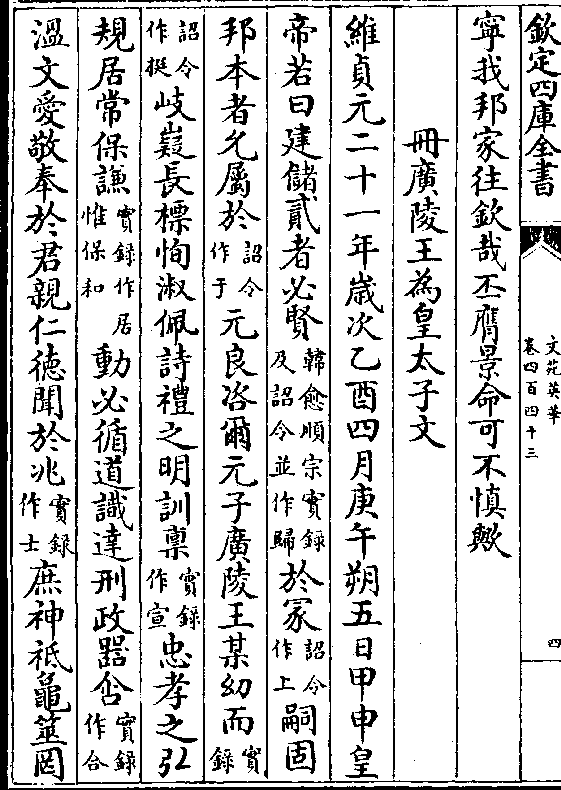 欽定四庫全書
文苑英華
卷四百四十三
四
寧我邦家往欽哉丕膺景命可不慎歟
冊廣陵王為皇太子文
維貞元二十一年歲次乙酉四月庚午朔五日甲申皇
帝若曰建儲貳者必賢韓愈順宗實錄及詔令並作歸於冡詔令作上嗣固
邦本者允屬於詔令作于元良咨爾元子廣陵王某幼而實錄
詔令作挺岐嶷長標恂淑佩詩禮之明訓稟實錄作宣忠孝之弘
規居常保謙實錄作居惟保和動必循道識達刑政器㕣實錄作合
溫文愛敬奉於君親仁德聞於兆實錄作士庶神祗龜筮罔